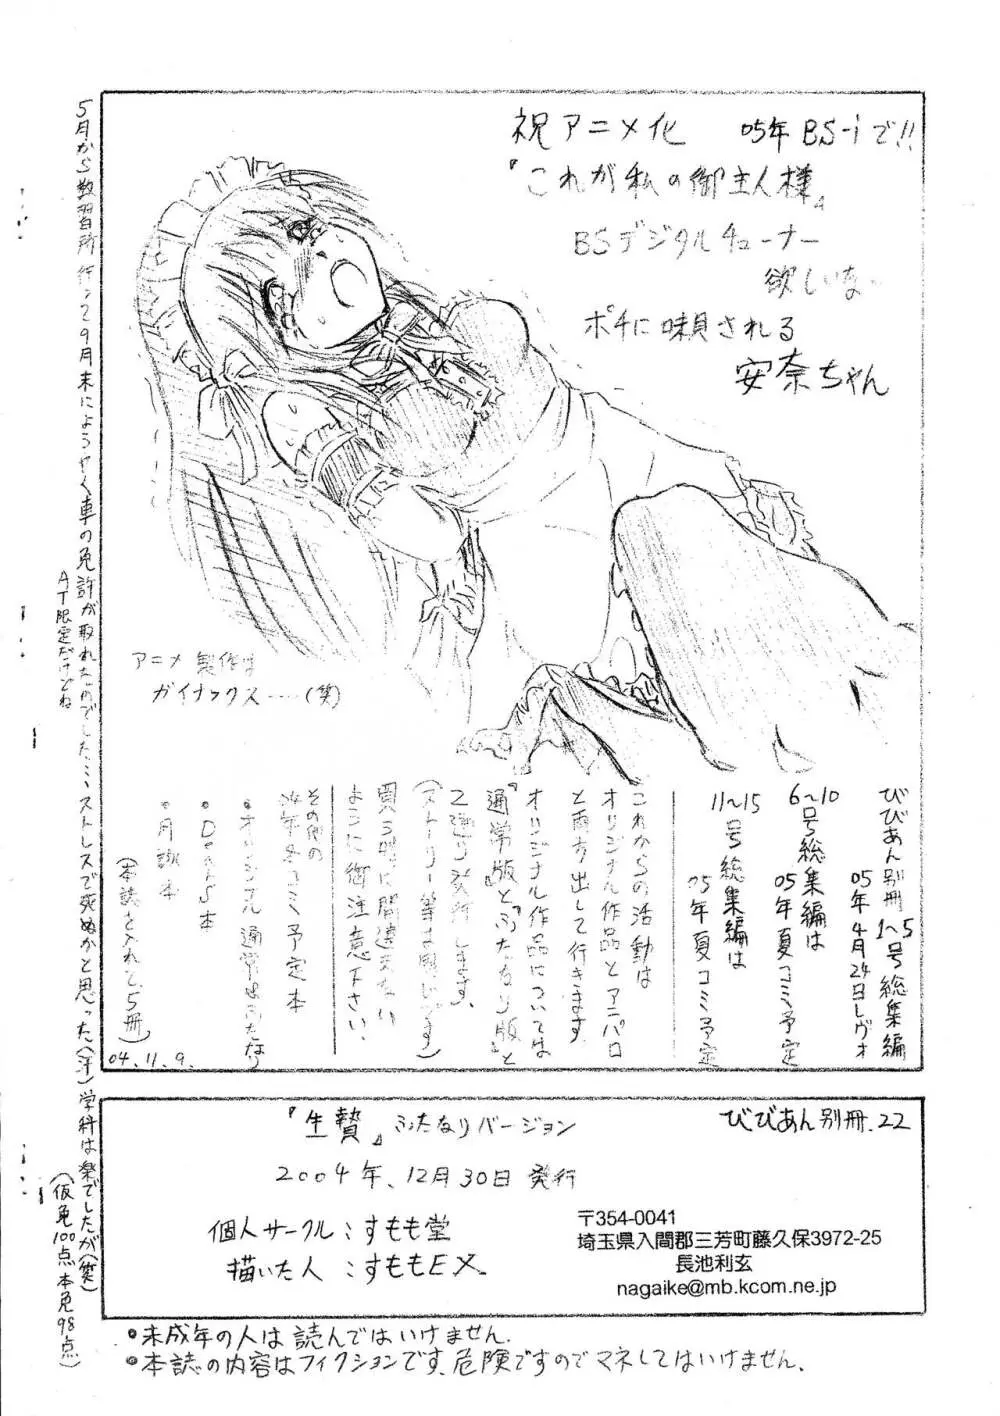 祝アニメ化 05年 BS-iで!!
『これが私の御主人様』
BSデジタルチューナー
欲しいな…
ポチに味見される
安奈ちゃん
アニメ製作は
ガイナックス‥‥(笑)
びびあん別冊 1～5号総集編
05年4月24日レヴォ
6～10号総集編は
05年夏コミ予定
11～15号総集編は
05年夏コミ予定
これからの活動は
オリジナル作品とアニパロ
と両方出して行きます
オリジナル作品については
『通常版』と『ふたなり版』と
2通り発行します。
(ストーリー等は同じです)
買う時に間違えない
ように御注意下さい。
その他の
04年冬コミ予定本
•オリジナル通常&ふたなり
•DearS本
•月詠本
(本誌を入れて、5冊)
04.11.9.
5月から教習所行って9月末にようやく車の免許が取れたのでした…ストレスで死ぬかと思った(汗)学科は楽でしたが(笑)
AT限定だけどね
(仮免100点本免98点)
『生贄』ふたなりバージョン
びびあん別冊.22
2004年、12月30日発行
個人サークル：すもも堂
描いた人：すももEX
〒354-0041
埼玉県入間郡三芳町藤久保3972-25
長池利玄
nagaike@mb.kcom.ne.jp
•未成年の人は読んではいけません.
•本誌の内容はフィクションです、危険ですのでマネしてはいけません.